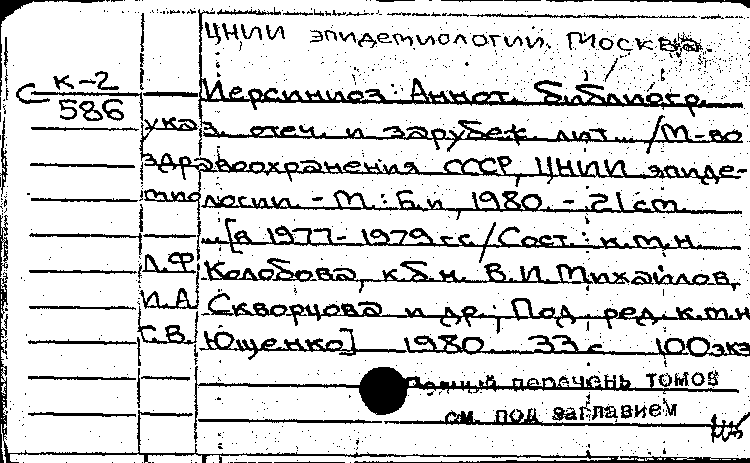 ЦНИИ эпидемиологии. Москва.
С К-2
586
Иерсиниоз: Аннот. библиогр.
указ. отеч. и зарубеж. лит... /М-во
здравоохранения СССР, ЦНИИ эпиде-
миологии. - М.: Б.и, 1980. - 21 см
...[в 1977-1979 гг/Сост.: к.м.н.
Л.Ф. Колобова, к.б.н. В.И. Михайлов,
И.А. Скворцова и др.; Под ред. к.м.н
Г.В. Ющенко] 1980 33 с 100экз
Полный перечень томов
см. под заглавием